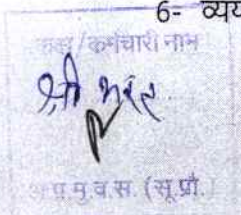 6- व्यय
कक्ष/कर्मचारी नाम
श्री
अ.प्र.मु.व.सं. (सू.प्रौ.)